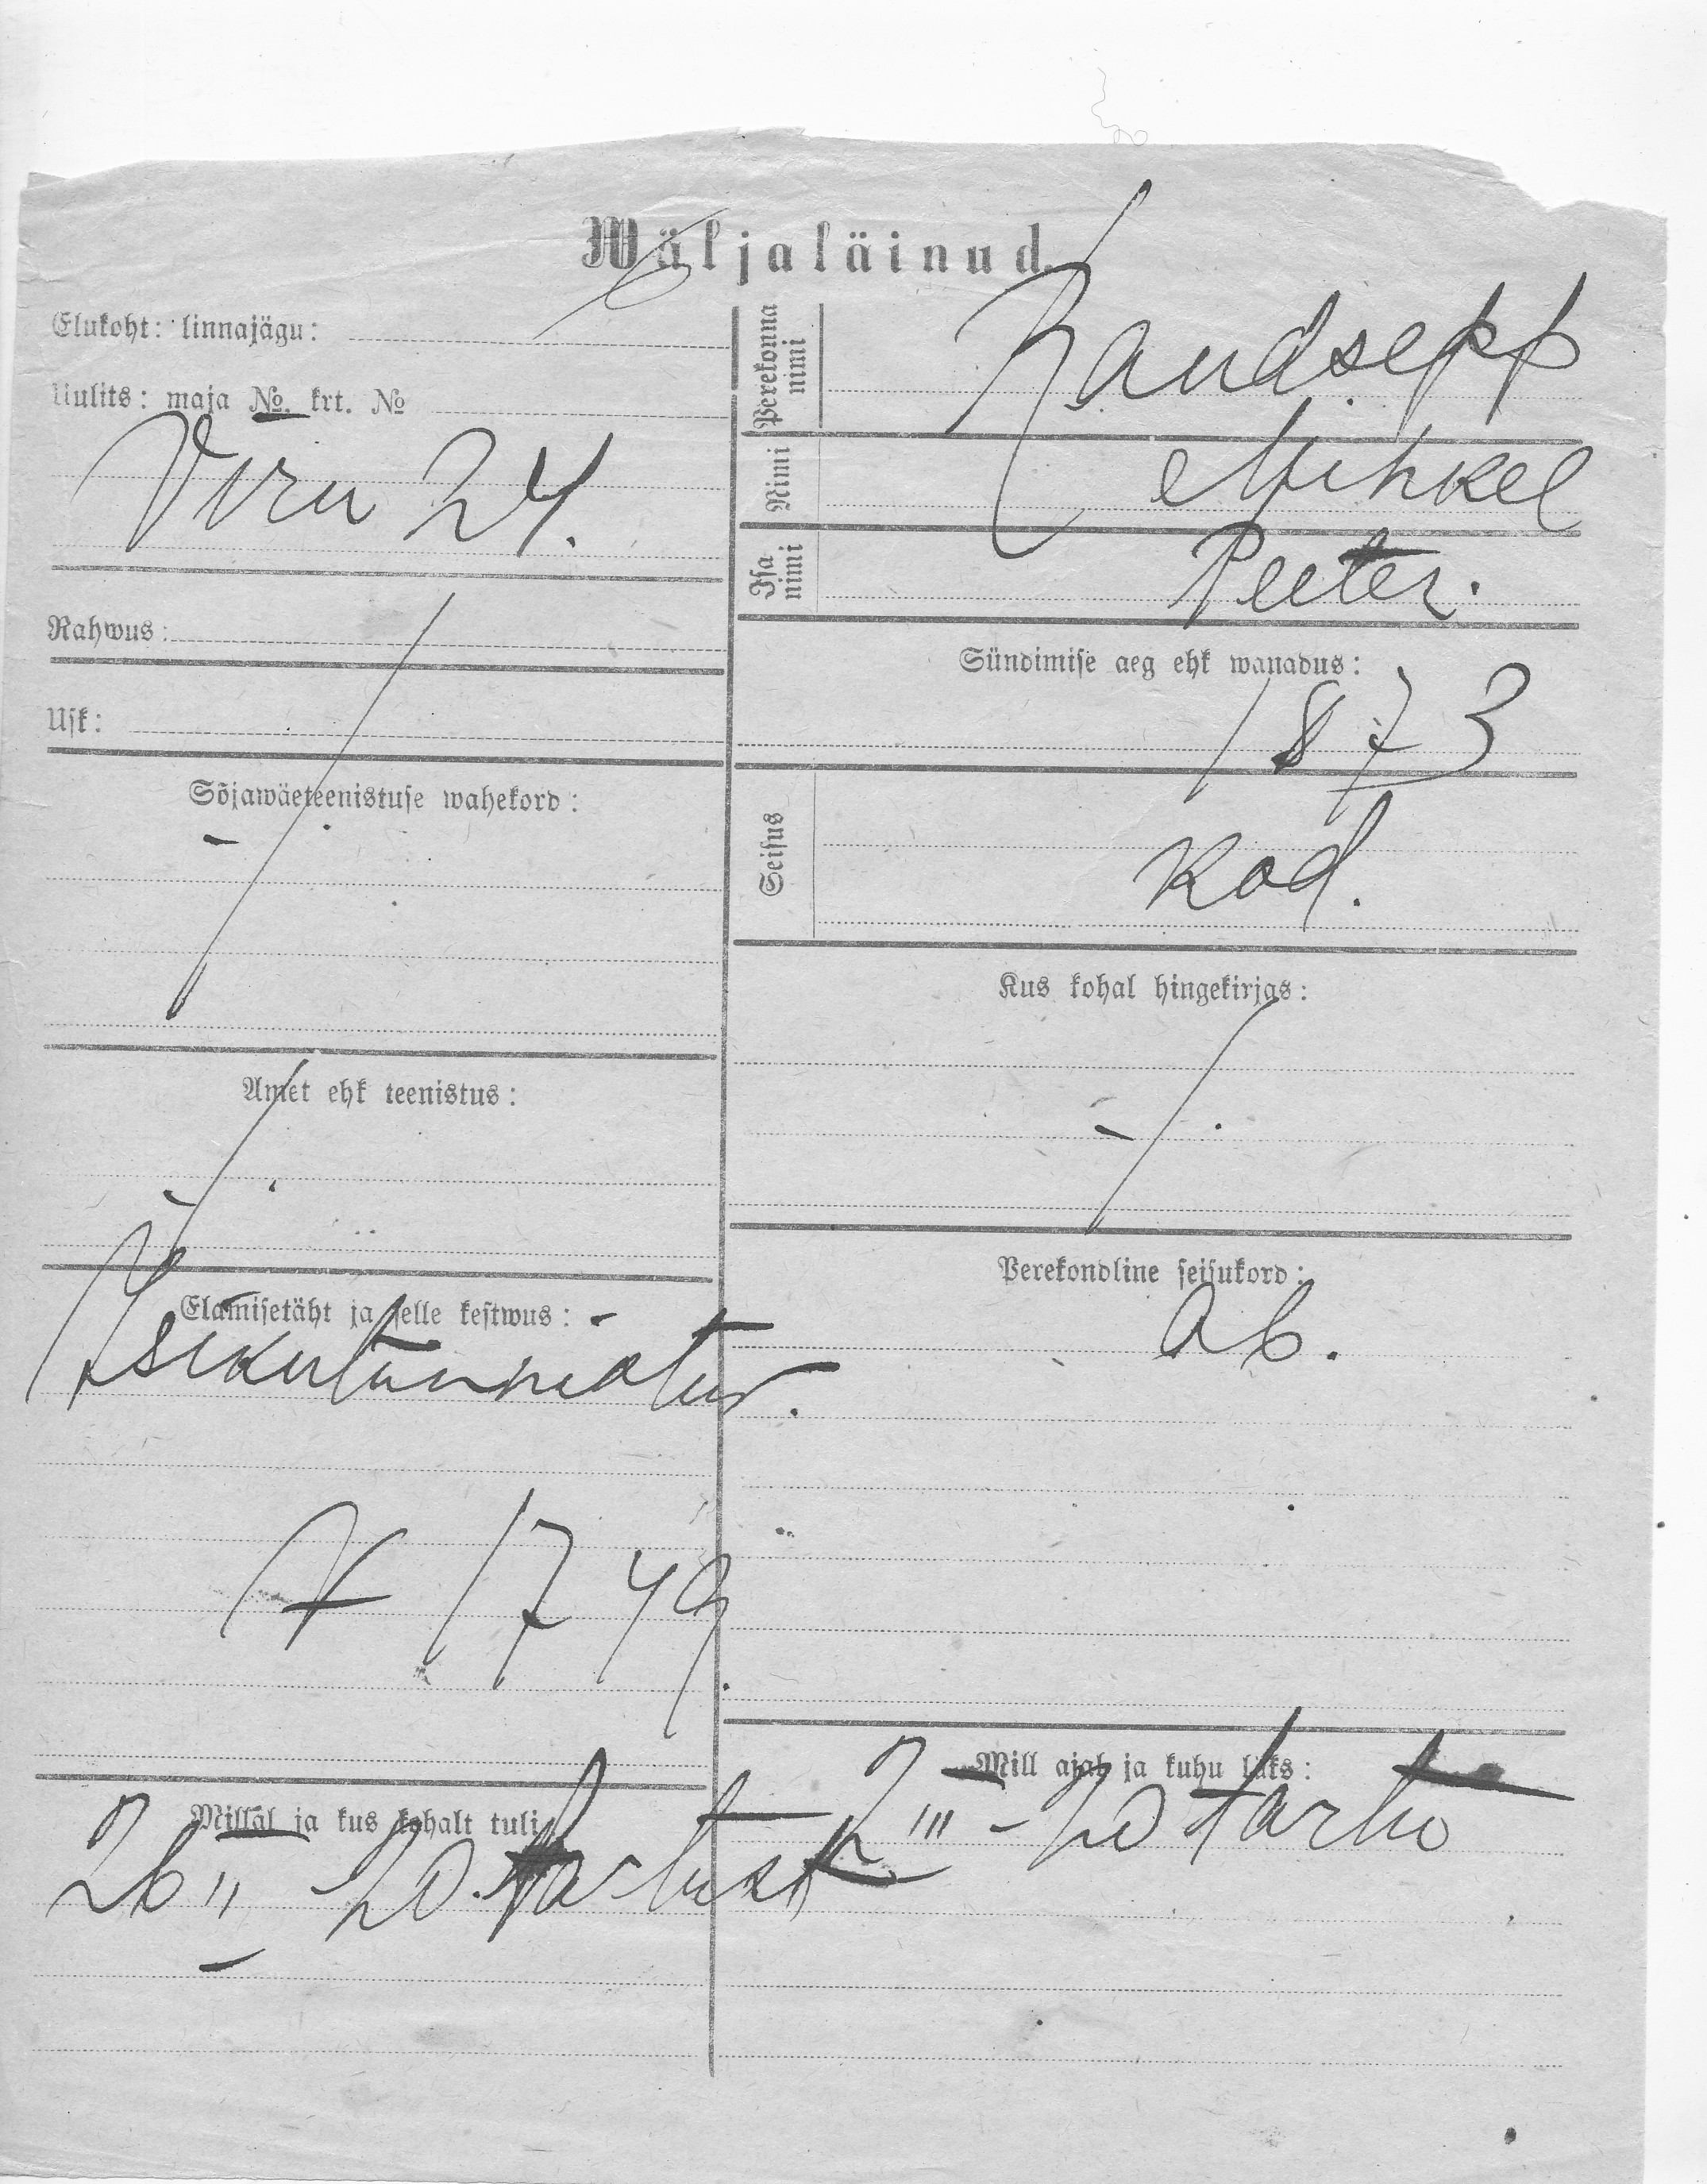 Wäljaläinud.
Elukoht: linnajägu:
Uulits: maja No. krt. No
Viru 24.
Rahwus:
Usk:
Sõjawäeteenistuse wahekord:
Amet ehk teenistus:
Elamisetäht ja selle kestwus:
Isikutunnistus.
1749.
Millal ja kus kohalt tuli
26 II - 20. Tartust
Perekonna nimi
Raudsepp
Nimi
Mihkel
Isa nimi
Peeter.
Sündimise aeg ehk wanadus:
1873
Seisus
Kod.
Kus kohal hingekirjas:
Perekondline seisukord:
Ab.
Mill ajal ja kuhu läks:
2 III - 20 Tartu